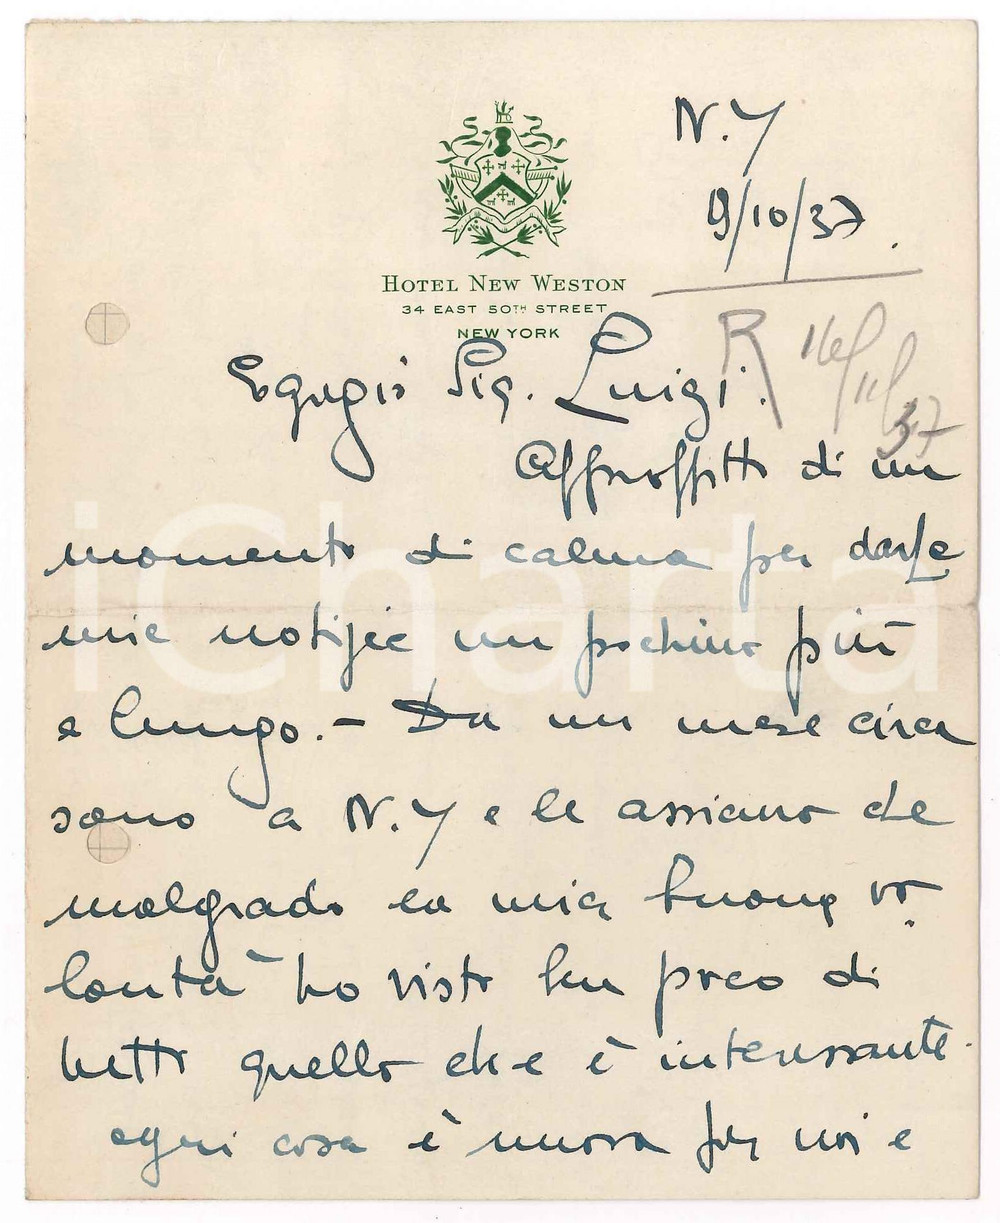 N. Y
9/10/37.
HOTEL NEW WESTON
34 EAST 50TH STREET
NEW YORK
R 16/11/37
Egregio Sig. Luigi.
Approffitto di un
momento di calma per darLe
mie notizie un pochino più
a lungo. – Da un mese circa
sono a N. Y e le assicuro che
malgrado la mia buona vo
lontà ho visto ben poco di
tutto quello che è interessante.
ogni cosa è nuova per noi e
iCharta